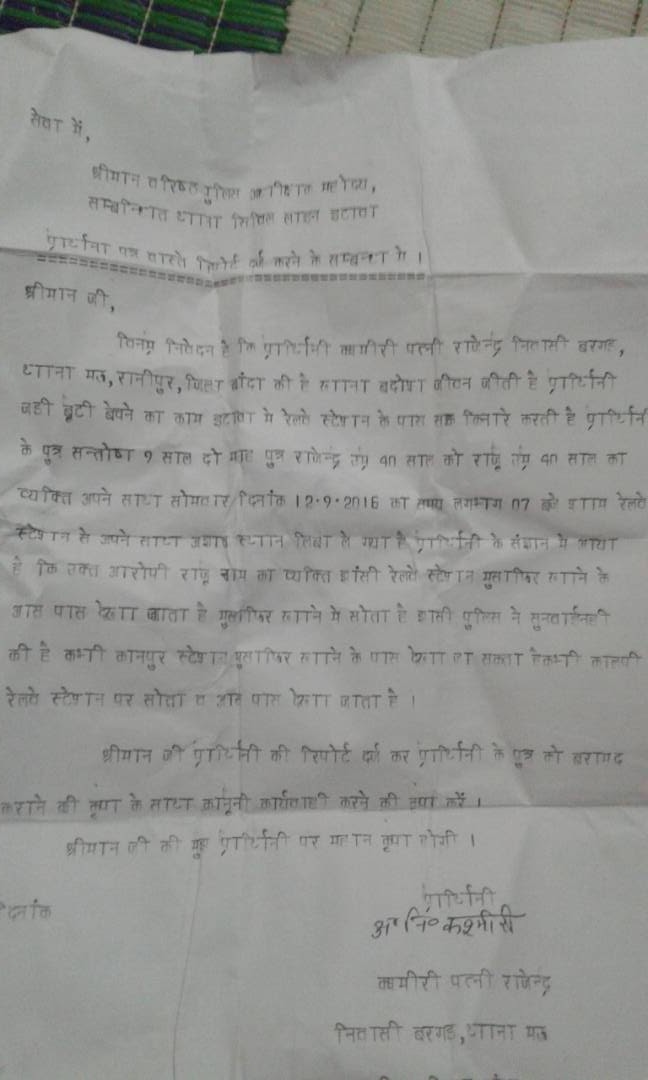 सेवा में,
श्रीमान वरिष्ठ पुलिस अधीक्षक महोदय,
सम्बन्धित थाना सिविल लाइन इटावा
प्रार्थना पत्र वास्ते रिपोर्ट दर्ज करने के सम्बन्ध में ।
श्रीमान जी,
विनम्र निवेदन है कि प्रार्थिनी कश्मीरी पत्नी राजेन्द्र निवासी बरगढ,
थाना मऊ, रानीपुर, जिला बाँदा की है खाना बदोश जीवन जीती है प्रार्थिनी
जडी बूटी बेचने का काम इटावा मे रेलवे स्टेशन के पास सडक किनारे करती है प्रार्थिनी
के पुत्र सन्तोष 9 साल दो माह पुत्र राजेन्द्र उम्र 40 साल को राजू उम्र 40 साल का
व्यक्ति अपने साथ सोमवार दिनांक 12.9.2016 का समय लगभग 07 बजे शाम रेलवे
स्टेशन से अपने साथ अज्ञात स्थान लिवा ले गया है प्रार्थिनी के संज्ञान मे आया
है कि उक्त आरोपी राजू नाम का व्यक्ति झांसी रेलवे स्टेशन मुसाफिर खाने के
आस पास देखा जाता है मुसाफिर खाने मे सोता है झांसी पुलिस ने सुनवाई नही
की है कभी कानपुर स्टेशन मुसाफिर खाने के पास देखा जा सकता है कभी कालपी
रेलवे स्टेशन पर सोता व आस पास देखा जाता है ।
श्रीमान जी प्रार्थिनी की रिपोर्ट दर्ज कर प्रार्थिनी के पुत्र को बरामद
कराने की कृपा के साथ कानूनी कार्यवाही करने की कृपा करें ।
श्रीमान जी की मुझ प्रार्थिनी पर महान कृपा होगी ।
प्रार्थिनी
दिनांक
अ० नि० कश्मीरी
कश्मीरी पत्नी राजेन्द्र
निवासी बरगढ, थाना मऊ